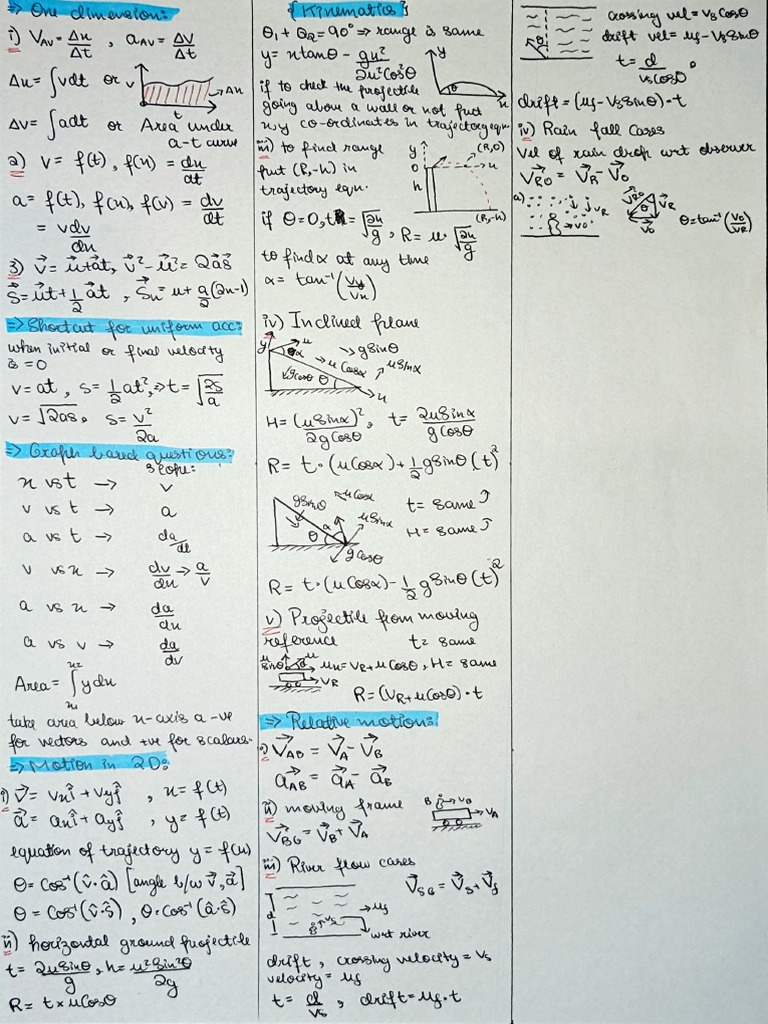 {Kinematics}
⇒ One dimension:
i) V_AV = Δx/Δt , a_AV = ΔV/Δt
Δx = ∫vdt or v t Δx
Δv = ∫adt or Area under
a-t curve
2) v = f(t), f(x) = dx/dt
a = f(t), f(x), f(v) = dv/dt
= vdv/dx
3) v⃗ = u⃗+a⃗t, v⃗²-u⃗² = 2a⃗s⃗
s⃗ = u⃗t + 1/2 a⃗t , S⃗n = u + a/2 (2n-1)
⇒ Shortcut for uniform acc:
when initial or final velocity
is = 0
v = at , s = 1/2 at², ⇒ t = √(2s/a)
v = √2as, s = v²/2a
⇒ Graph based questions:
slope:
x vs t → v
v vs t → a
a vs t → da/dt
v vs x → dv/dx → a/v
a vs x → da/dx
a vs v → da/dv
Area = ∫ydx x₁ x₂
take area below x-axis a -ve
for vectors and +ve for scalars.
⇒ Motion in 2D:
i) v⃗ = vxî + vyĵ , x = f(t)
a⃗ = axî + ayĵ , y = f(t)
equation of trajectory y = f(x)
θ = Cos⁻¹(v̂·â) [angle b/w v⃗, a⃗]
θ = Cos⁻¹(v̂·ŝ) , θ·Cos⁻¹(â·ŝ)
ii) horizontal ground projectile
t = 2uSinθ/g , h = u²Sin²θ/2g
R = t×uCosθ
θ₁ + θ₂ = 90° ⇒ range is same
y = xtanθ - gx²/2u²Cos²θ
y x θ
if to check the projectile
going above a wall or not put
x,y co-ordinates in trajectory eqn
iii) to find range
put (R,-h) in
trajectory eqn.
y 0 h (R,0) x (R,-h)
if θ = 0, t = √(2h/g) , R = u·√(2h/g)
to find α at any time
α = tan⁻¹(Vy/Vx)
iv) Inclined plane
y u α gSinθ uCosα uSinα gCosθ θ x
H = (uSinα)²/2gCosθ , t = 2uSinα/gCosθ
R = t·(uCosα) + 1/2 gSinθ (t)²
gSinθ uCosα uSinα θ α gCosθ
t = same
H = same
R = t·(uCosα) - 1/2 gSinθ (t)²
v) Projectile from moving
reference t = same
uSinθ u θ VR
ux = VR + uCosθ , H = same
R = (VR + uCosθ)·t
⇒ Relative motion:
i) V⃗AB = V⃗A - V⃗B
a⃗AB = a⃗A - a⃗B
ii) moving frame
B VB VA
V⃗BG = V⃗B + V⃗A
iii) River flow cases
V⃗SG = V⃗S + V⃗f
d uf vs
wrt river
drift , crossing velocity = vs
velocity = uf
t = d/vs , drift = uf·t
crossing vel = vsCosθ
drift vel = uf - vsSinθ
t = d/vsCosθ
θ
drift = (uf - vsSinθ)·t
iv) Rain fall Cases
Vel of rain drop wrt observer
V⃗RO = V⃗R - V⃗O
a) VR VO VRO θ VR VO θ = tan⁻¹(VO/VR)